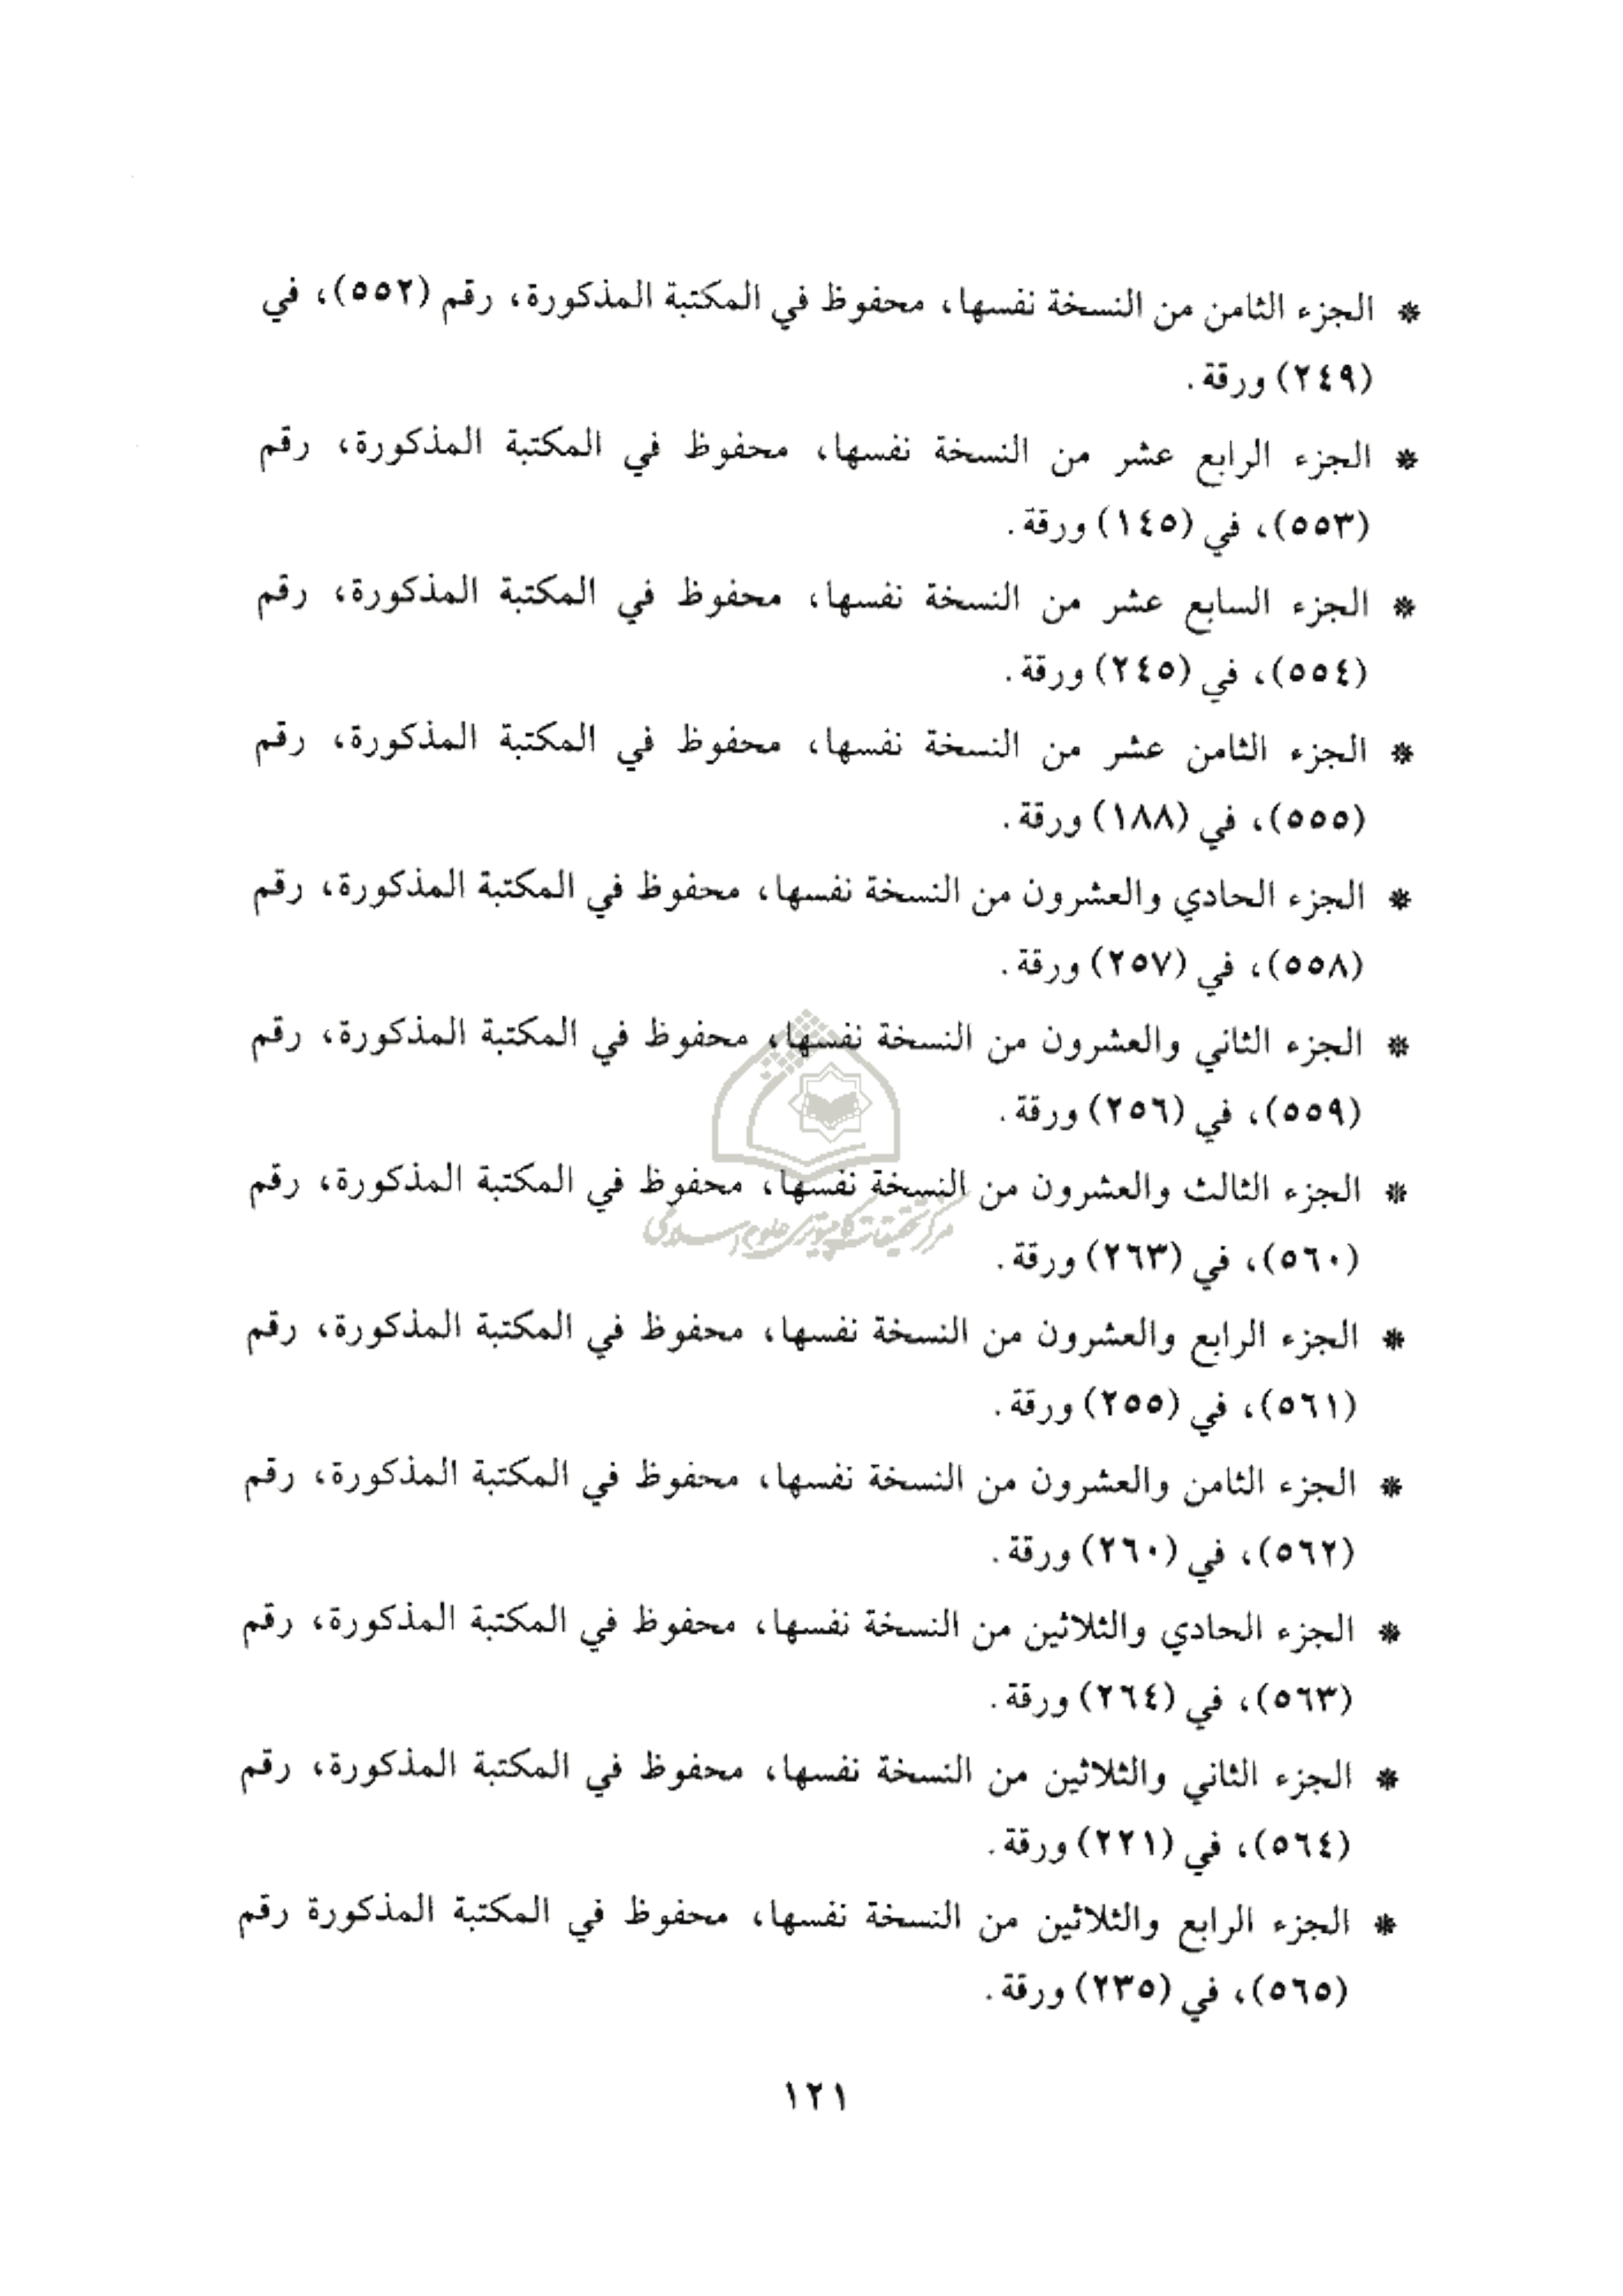 * الجزء الثامن من النسخة نفسها، محفوظ في المكتبة المذكورة، رقم (٥٥٢)، في
(٢٤٩) ورقة.
* الجزء الرابع عشر من النسخة نفسها، محفوظ في المكتبة المذكورة، رقم
(٥٥٣)، في (١٤٥) ورقة.
* الجزء السابع عشر من النسخة نفسها، محفوظ في المكتبة المذكورة، رقم
(٥٥٤)، في (٢٤٥) ورقة.
* الجزء الثامن عشر من النسخة نفسها، محفوظ في المكتبة المذكورة، رقم
(٥٥٥)، في (١٨٨) ورقة.
* الجزء الحادي والعشرون من النسخة نفسها، محفوظ في المكتبة المذكورة، رقم
(٥٥٨)، في (٢٥٧) ورقة.
* الجزء الثاني والعشرون من النسخة نفسها، محفوظ في المكتبة المذكورة، رقم
(٥٥٩)، في (٢٥٦) ورقة.
* الجزء الثالث والعشرون من النسخة نفسها، محفوظ في المكتبة المذكورة، رقم
مرکز تحقیقات کامپیوتری علوم اسلامی
(٥٦٠)، في (٢٦٣) ورقة.
* الجزء الرابع والعشرون من النسخة نفسها، محفوظ في المكتبة المذكورة، رقم
(٥٦١)، في (٢٥٥) ورقة.
* الجزء الثامن والعشرون من النسخة نفسها، محفوظ في المكتبة المذكورة، رقم
(٥٦٢)، في (٢٦٠) ورقة.
* الجزء الحادي والثلاثين من النسخة نفسها، محفوظ في المكتبة المذكورة، رقم
(٥٦٣)، في (٢٦٤) ورقة.
* الجزء الثاني والثلاثين من النسخة نفسها، محفوظ في المكتبة المذكورة، رقم
(٥٦٤)، في (٢٢١) ورقة.
* الجزء الرابع والثلاثين من النسخة نفسها، محفوظ في المكتبة المذكورة رقم
(٥٦٥)، في (٢٣٥) ورقة.
١٢١